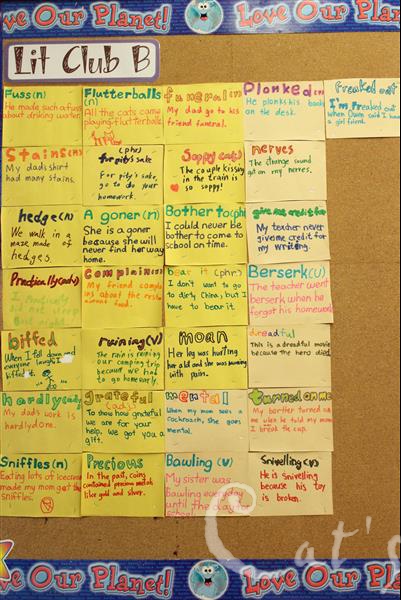 Love Our Planet!
Love Our Plan
Lit Club B
Fuss(n)
He made such a fuss
about drinking water.
Flutterballs
(n)
All the cats came
playing flutterballs.
funeral(n)
My dad go to his
friend funeral.
Plonked(v)
He plonks his book
on the desk.
Freaked out
I'm freaked out
when Owen said I have
a girl friend.
Stains(n)
My dads shirt
had many stains.
(phr)
for pity's sake
For pity's sake,
go to do your
homework.
Soppy(adj)
The couple kissing
in the train is
so soppy!
nerves
The strange sound
got on my nerves.
hedge(n)
We walk in a
maze made of
hedges.
A goner(n)
She is a goner
because she will
never find her way
home.
Bother to(phr)
I could never be
bother to come to
school on time.
give me credit for
My teacher never
give me credit for
my writing.
Practically(adv)
I practically
did not sleep
last night.
Complain(v)
My friend complains
about the restaurant food.
bear it (phr)
I don't want to
go to dirty China, but I
have to bear it.
Berserk(v)
The teacher went
berserk when he
forgot his homework.
biffed
When I fell down and
everyone laughed
biffed it.
ruining(v)
The rain is ruining
our camping trip
because we had
to go home early.
moan
Her leg was hurting
her and she was moaning
with pain.
dreadful
This is a dreadful movie
because the hero died.
hardly(adv)
My dads work is
hardly done.
grateful
(adj)
To show how grateful
we are for your
help. We got you a
gift.
mental
When my mom sees a
cockroach, she goes
mental.
turned on me
My borther turned on
me when he told my mom
I break the cup.
Sniffles(n)
Eating lots of icecream
made my mom get the
sniffles.
Precious
In the past, coins
contained precious metals
like gold and silver.
Bawling (v)
My sister was
Bawling everyday
until the day for
school.
Snivelling(v)
He is Snivelling
because his toy
is broken.
Cat's
ve Our Planet!
Love Our Planet!